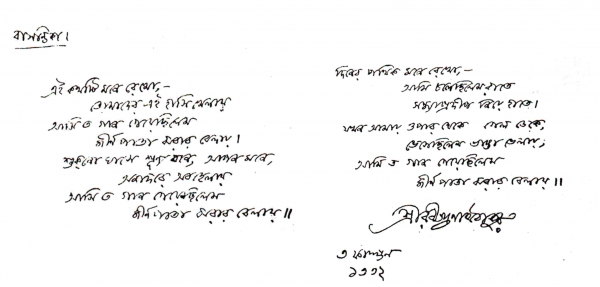 বাসন্তিকা।
এই কথাটি মনে রেখো,–
তোমাদের এই হাসিখেলায়
আমি ত গান গেয়েছিলেম
জীর্ণ পাতা ঝরার বেলায়।
শুক্‌নো ঘাসে শূন্য বনে, আপন মনে,
অনাদরে অবহেলায়
আমি ত গান গেয়েছিলেম
জীর্ণ পাতা ঝরার বেলায়॥
দিনের পথিক মনে রেখো,–
আমি চলেছিলেম রাতে
সন্ধ্যাপ্রদীপ নিয়ে হাতে।
যখন আমায় ওপার থেকে গেল ডেকে,
ভেসেছিলেম ভাঙা ভেলায়,
আমি ত গান গেয়েছিলেম
জীর্ণ পাতা ঝরার বেলায়॥
শ্রীরবীন্দ্রনাথ ঠাকুর
৩ ফাল্গুন